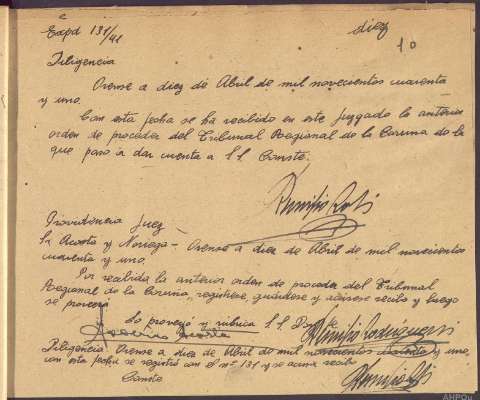 Expd 131/41
diez
10
Diligencia
Orense a diez de Abril de mil novecientos cuarenta
y uno.
Con esta fecha se ha recibido en este juzgado la anterior
orden de proceder del Tribunal Regional de la Coruna de la
que paso a dar cuenta a S.S. Conste.
Providencia Juez
Sr Acosta y Noriega - Orense a diez de Abril de mil novecientos
cuarenta y uno.
Por recibida la anterior orden de proceder del Tribunal
Regional de la Coruña, registrese, guárdese y acúsese recibo y luego
se proveerá
Lo proveyó y rubrica S.S. Doy fe
Remisio Rodriguez
Diligencia Orense a diez de Abril de mil novecientos cuarenta y uno,
con esta fecha se registró con el nº 131 y se acusa recibo
Conste
AHPOu